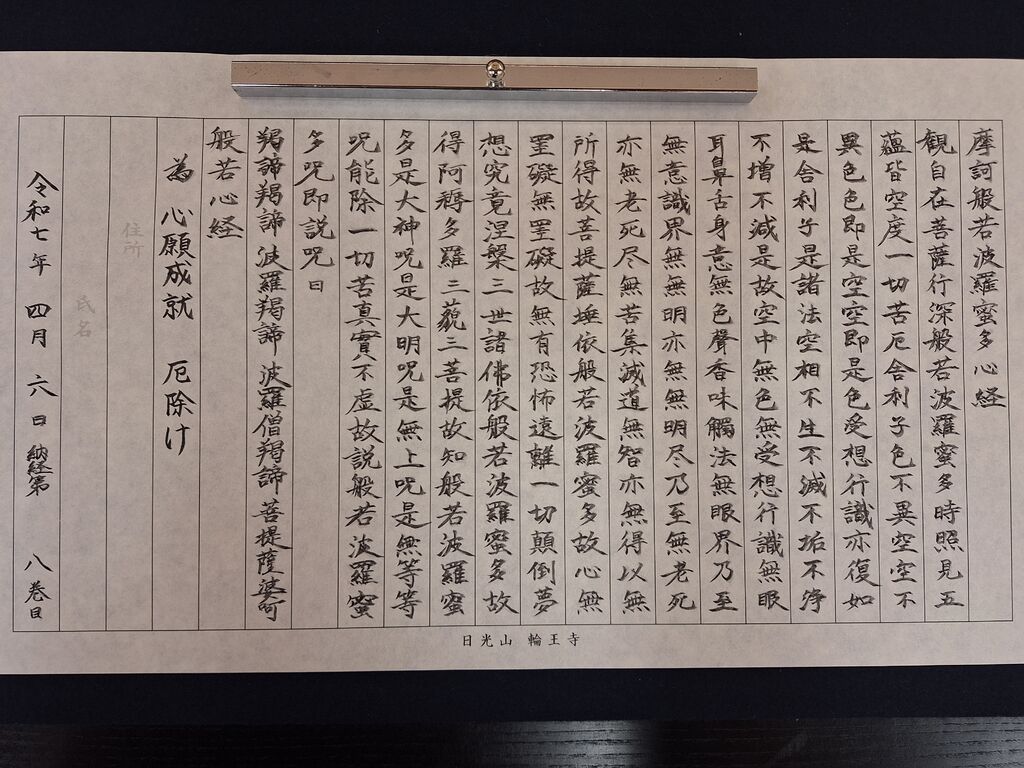 摩訶般若波羅蜜多心経
観自在菩薩行深般若波羅蜜多時照見五
蘊皆空度一切苦厄舎利子色不異空空不
異色色即是空空即是色受想行識亦復如
是舎利子是諸法空相不生不滅不垢不浄
不増不減是故空中無色無受想行識無眼
耳鼻舌身意無色聲香味觸法無眼界乃至
無意識界無無明亦無無明尽乃至無老死
亦無老死尽無苦集滅道無智亦無得以無
所得故菩提薩埵依般若波羅蜜多故心無
罣礙無罣礙故無有恐怖遠離一切顛倒夢
想究竟涅槃三世諸佛依般若波羅蜜多故
得阿耨多羅三藐三菩提故知般若波羅蜜
多是大神呪是大明呪是無上呪是無等等
呪能除一切苦真實不虚故説般若波羅蜜
多呪即説呪曰
羯諦羯諦 波羅羯諦 波羅僧羯諦 菩提薩婆訶
般若心経
為 心願成就 厄除け
住所
氏名
令和七年 四月 六日 納経第 八巻目
日光山 輪王寺